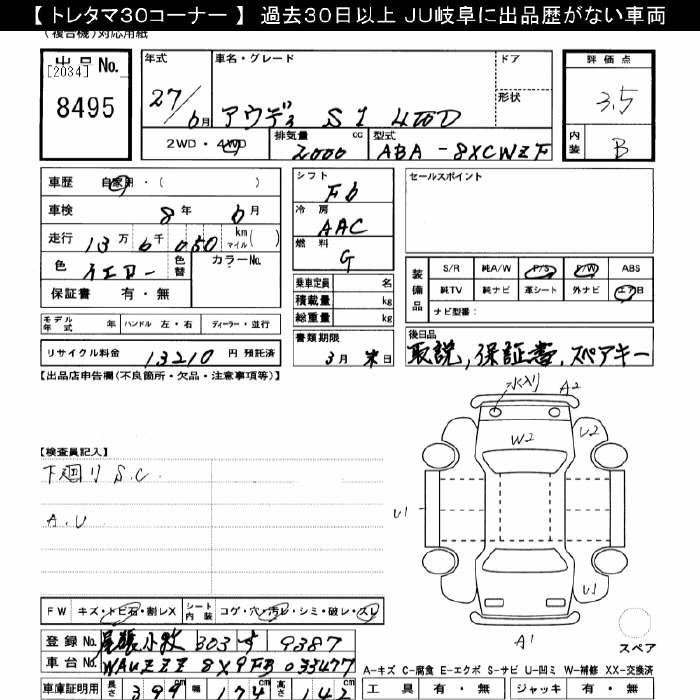 【 トレタマ30コーナー 】 過去30日以上 JU岐阜に出品歴がない車両
(複合機)対応用紙
出品 No.
[2034]
8495
年式 車名・グレード ドア
27/6月 アウディ S1 4WD 形状
2WD・4WD 排気量 cc 2000 型式 ABA-8XCWZF
評価点
3.5
内装 B
車歴 自家用・( )
車検 8年 6月
走行 13万 6千 050 km マイル ( )
色 イエロー 色替 カラーNo.
保証書 有・無
シフト F6
冷房 AAC
燃料 G
乗車定員 名
積載量 kg
総重量 kg
セールスポイント
装備品 S/R 純A/W P/S P/W ABS
純TV 純ナビ 革シート 外ナビ エアB
ナビ型番:
モデル年式 年 ハンドル 左・右 ディーラー・並行
リサイクル料金 13210 円 預託済
書類期限 3月 末日
後日品
取説, 保証書, スペアキー
【出品店申告欄(不良箇所・欠品・注意事項等)】
水入り A2
W2 U2
U1
U1
A1
スペア
【検査員記入】
下廻り S.C.
A.U
FW キズ・トビ石・割レX シート内装 コゲ・穴・汚レ・シミ・破レ・スレ
登録No. 尾張小牧 303 す 9387
車台No. WAUZZZ 8X9FB 033477
A-キズ C-腐食 E-エクボ S-サビ U-凹ミ W-補修 XX-交換済
車庫証明用 長さ 399 cm 幅 174 cm 高さ 142 cm
工具 有・無 ジャッキ 有・無